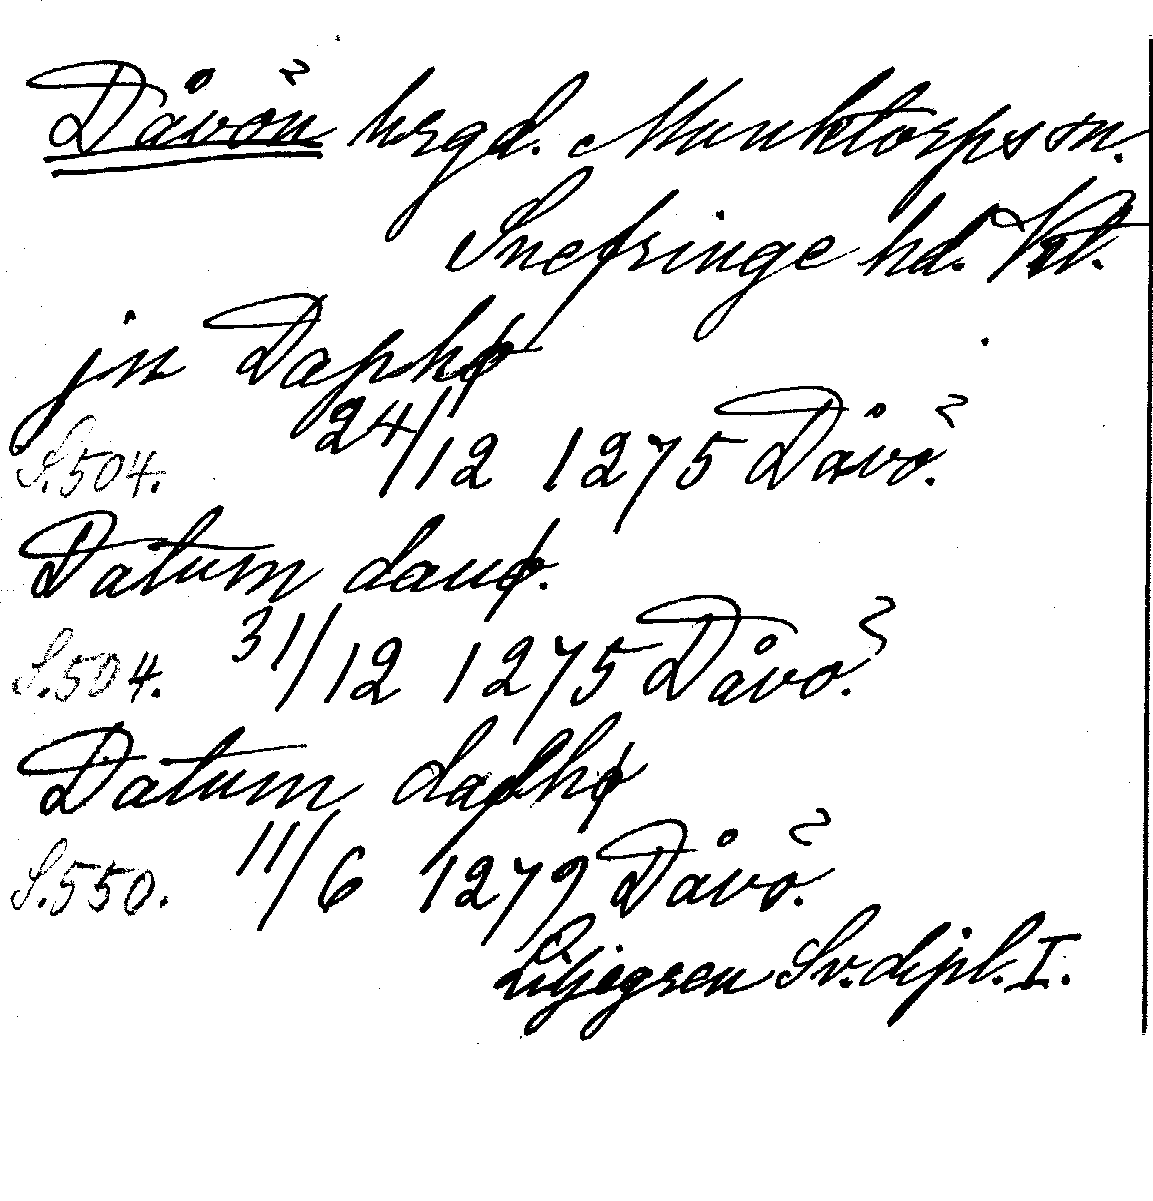 Dåvön hrgd. Munktorps sn.
Snefringe hd. Vstl.
jn Daphø
S.504. 24/12 1275 Dåvö.
Datum dauø.
S.504. 31/12 1275 Dåvö.
Datum daphø
S.550. 11/6 1279 Dåvö.
Liljegren Sv. dipl. I.